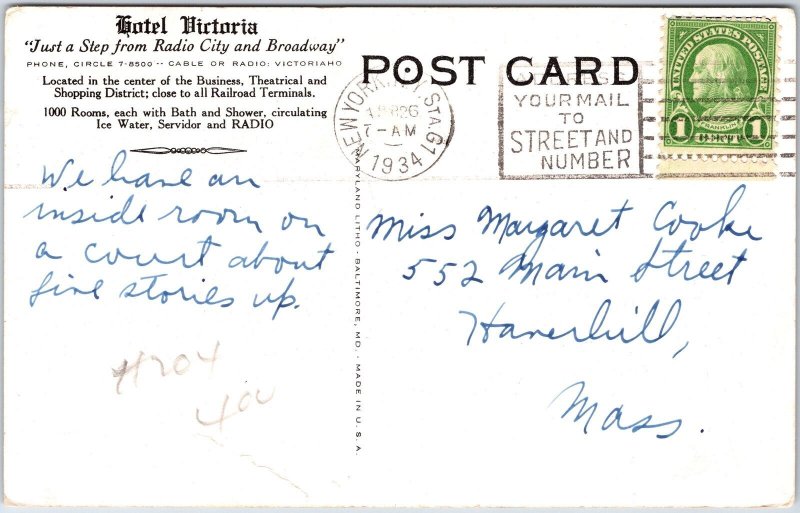 Hotel Victoria
"Just a Step from Radio City and Broadway"
PHONE, CIRCLE 7-8500 -- CABLE OR RADIO: VICTORIAHO
Located in the center of the Business, Theatrical and
Shopping District; close to all Railroad Terminals.
1000 Rooms, each with Bath and Shower, circulating
Ice Water, Servidor and RADIO
We have an
inside room on
a court about
five stories up.
#204
400
MARYLAND LITHO. - BALTIMORE, MD. - MADE IN U.S.A.
POST CARD
NEW YORK, N.Y. STA. 61
26
7-AM
1934
YOUR MAIL
TO
STREET AND
NUMBER
UNITED STATES POSTAGE
FRANKLIN
1 1
Miss Margaret Cooke
552 Main Street
Haverhill,
Mass.